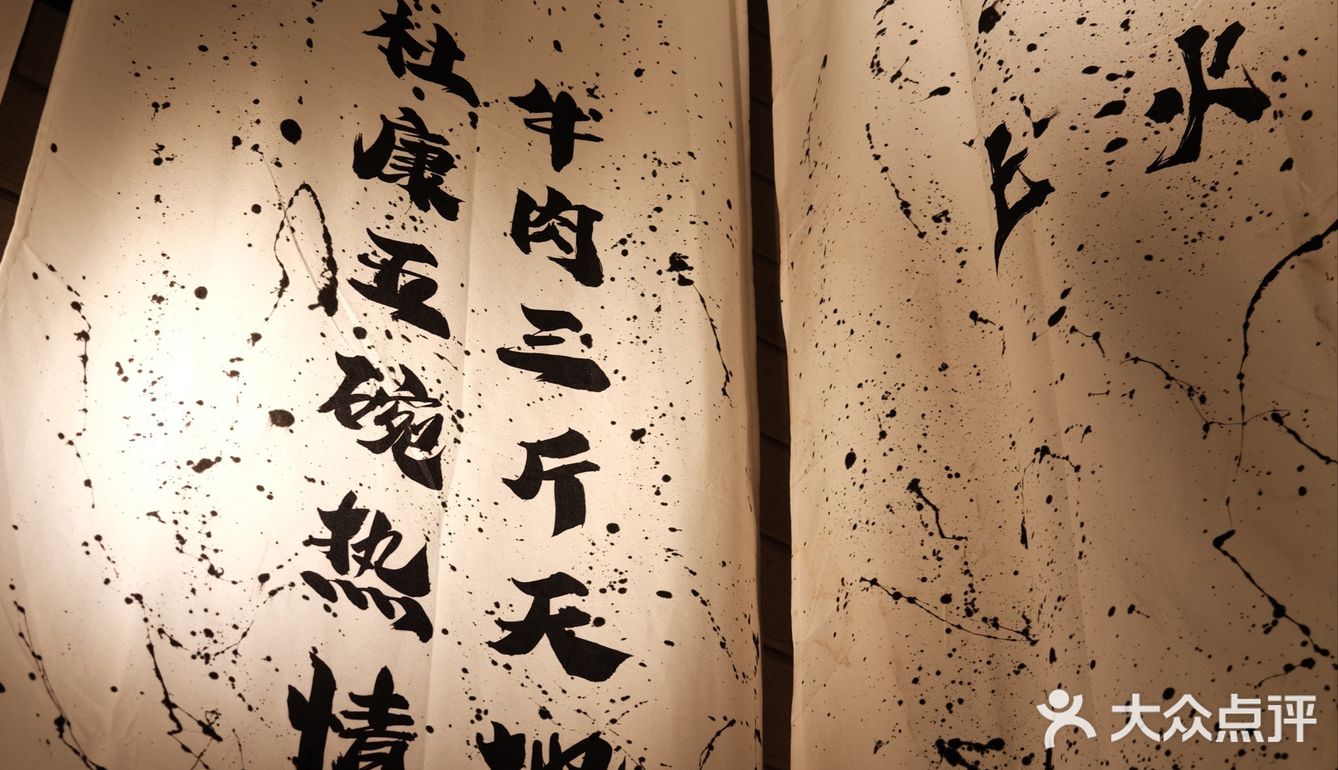 火
牛肉三斤天
杜康五碗热情
大众点评